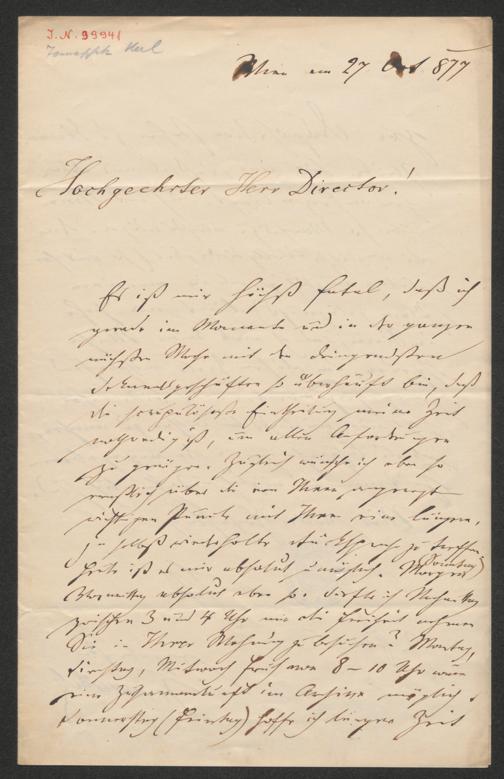 I.N. 99941
Tomaschek Karl
Wien am 27 Oct. 877
Hochgeehrter Herr Director!
Es ist mir höchst fatal, daß ich
gerade im Momente und in der ganzen
nächsten Woche mit den dringendsten
Dekanatsgeschäften so überhäuft bin, daß
die scrupulöseste Eintheilung meiner Zeit
nothwendig ist, um allen Anforderungen
zu genügen. Zugleich wünsche ich aber so
ernstlich über die von Ihnen angeregten
wichtigen Punkte mit Ihnen eine längere,
ja selbst wiederholte Rücksprache zu treffen.
Heute ist es mir absolut unmöglich. Morgen (Sonntag)
Vormittag absolut eben so. Dürfte ich Nachmittag
zwischen 3 und 4 Uhr mir die Freiheit nehmen
Sie in Ihrer Wohnung zu besuchen? Montag,
Dienstag, Mittwoch von 8 – 10 Uhr wäre
eine Zusammenkunft im Archive möglich.
Donnerstag (Feiertag) hoffe ich längere Zeit